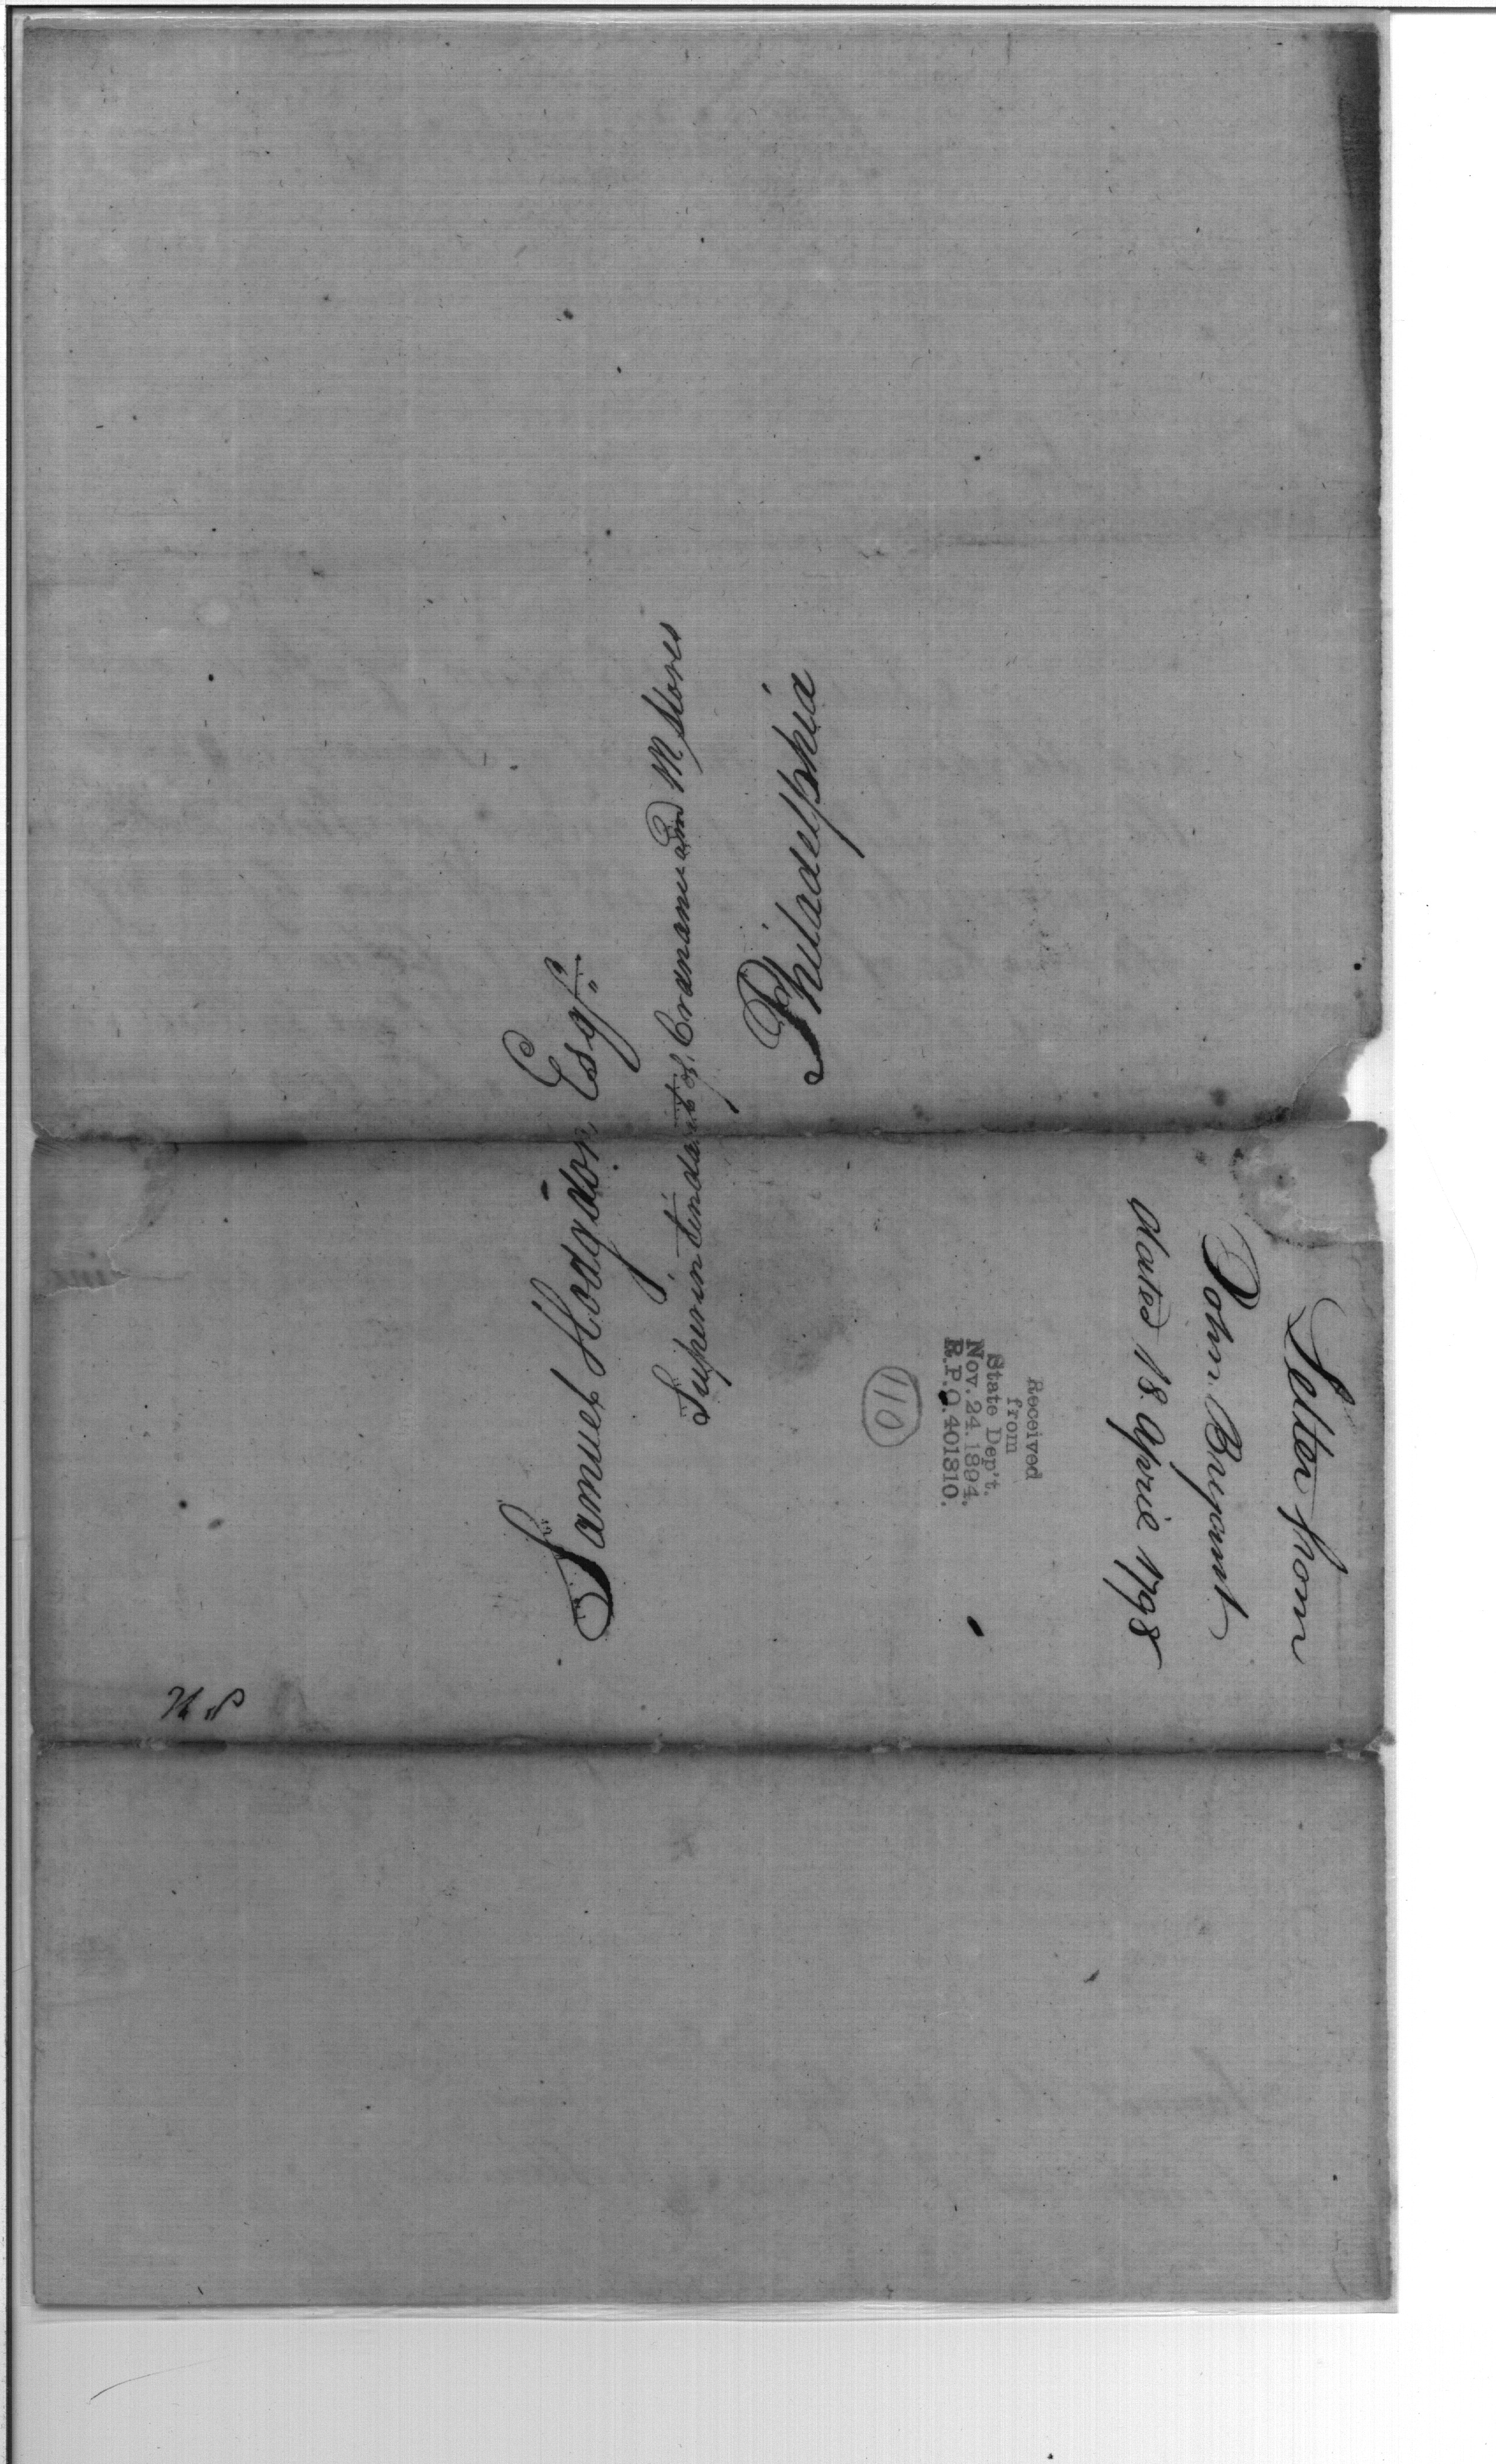 Samuel Hodgdon Esqr.
Superintendant of Ordnance and M Stores
Philadelphia
Letter from
John Bryant
dated 18 April 1798
Received
from
State Dep't.
Nov. 24. 1894.
R.P.O. 401810.
110